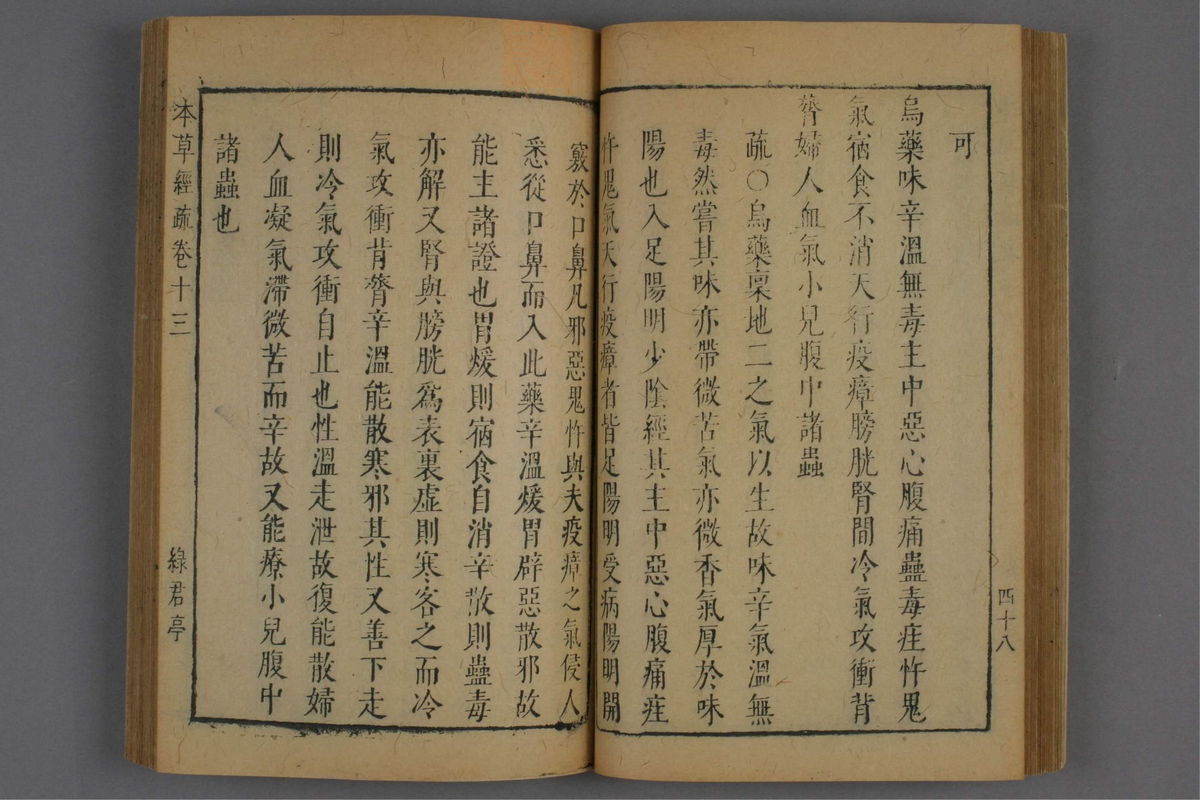 可
烏藥味辛溫無毒主中惡心腹痛蠱毒疰忤鬼
氣宿食不消天行疫瘴膀胱腎間冷氣攻衝背
膂婦人血氣小兒腹中諸蟲
疏〇烏藥稟地二之氣以生故味辛氣溫無
毒然嘗其味亦帶微苦氣亦微香氣厚於味
陽也入足陽明少陰經其主中惡心腹痛疰
忤鬼氣天行疫瘴者皆足陽明受病陽明開
四十八
竅於口鼻凡邪惡鬼忤與夫疫瘴之氣侵人
悉從口鼻而入此藥辛溫煖胃辟惡散邪故
能主諸證也胃煖則宿食自消辛散則蠱毒
亦解又腎與膀胱爲表裏虛則寒客之而冷
氣攻衝背膂辛溫能散寒邪其性又善下走
則冷氣攻衝自止也性溫走泄故復能散婦
人血凝氣滯微苦而辛故又能療小兒腹中
諸蟲也
本草經疏卷十三
綠君亭